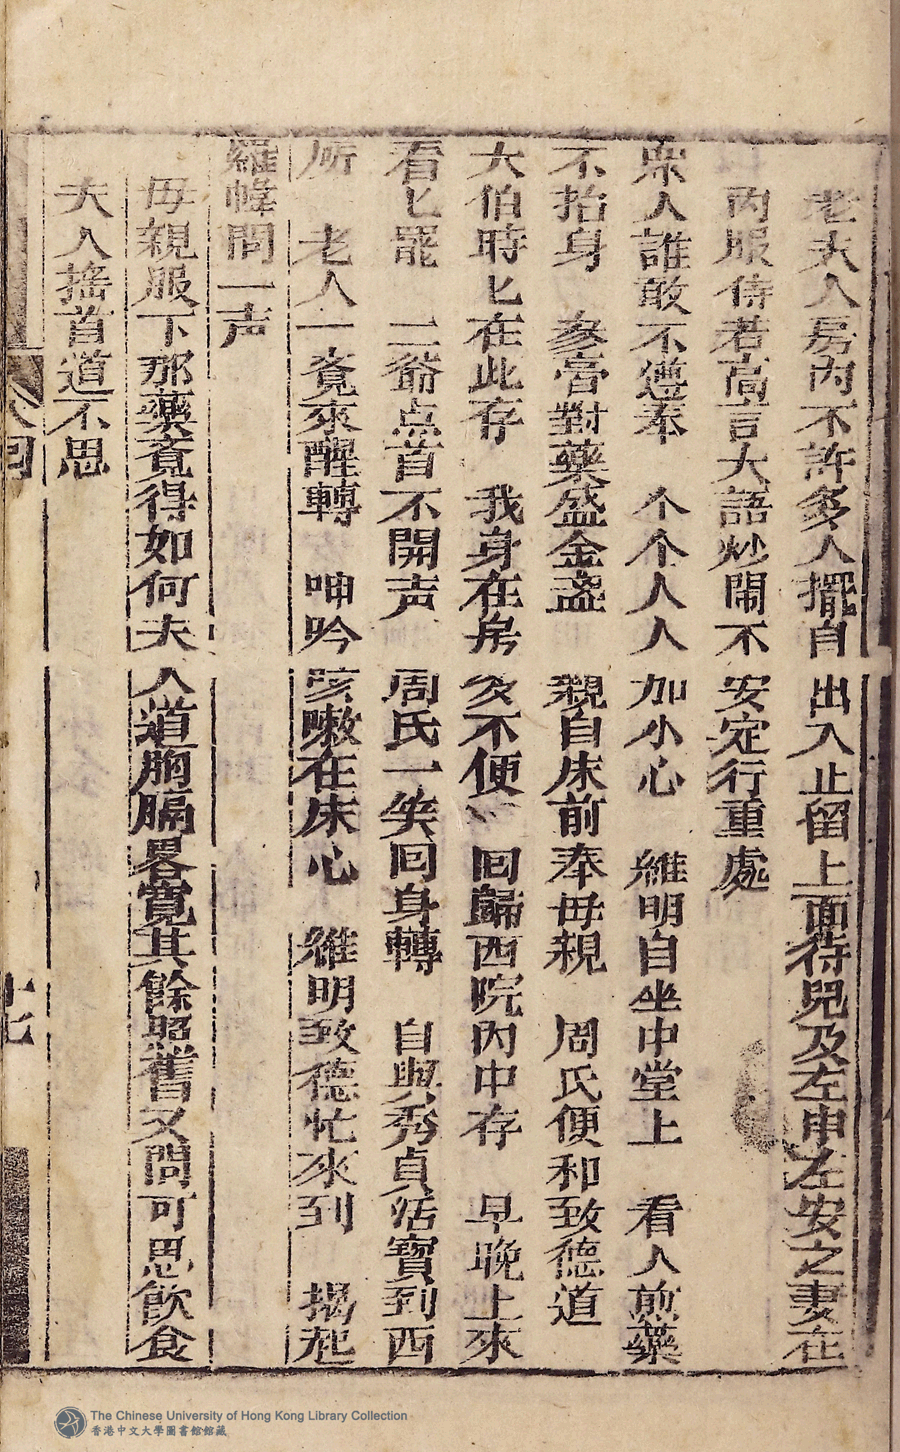 老夫人房內不許多人擺自出入止留上面待兒及左申左安之妻在
內服侍若高言大語炒鬧不安定行重處
眾人誰敢不遵奉　个个人人加小心　維明自坐中堂上　看人煎藥
不抬身　參膏對藥盛金盞　親自床前奉母親　周氏便和致德道
大伯時匕在此存　我身在房多不便　回歸西院內中存　早晚上來
看匕罷　二爺点首不開声　周氏一笑回身轉　自與秀貞活寶到西
所　老人一覔來醒轉　呻吟咳嗽在床心　維明致德忙來到　揭起
羅幃問一声
母親服下那藥覔得如何夫人道胸膈畧寬其餘照舊又問可思飲食
夫人搖首道不思
十七
The Chinese University of Hong Kong Library Collection
香港中文大學圖書館館藏